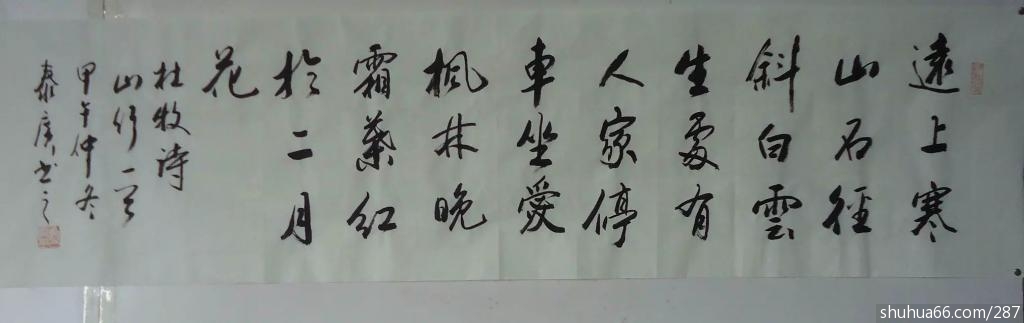 遠上寒
山石徑
斜白雲
生處有
人家停
車坐愛
楓林晚
霜葉紅
於二月
花
杜牧詩
山行一首
甲午仲冬
泰书之
shuhua66.com/287